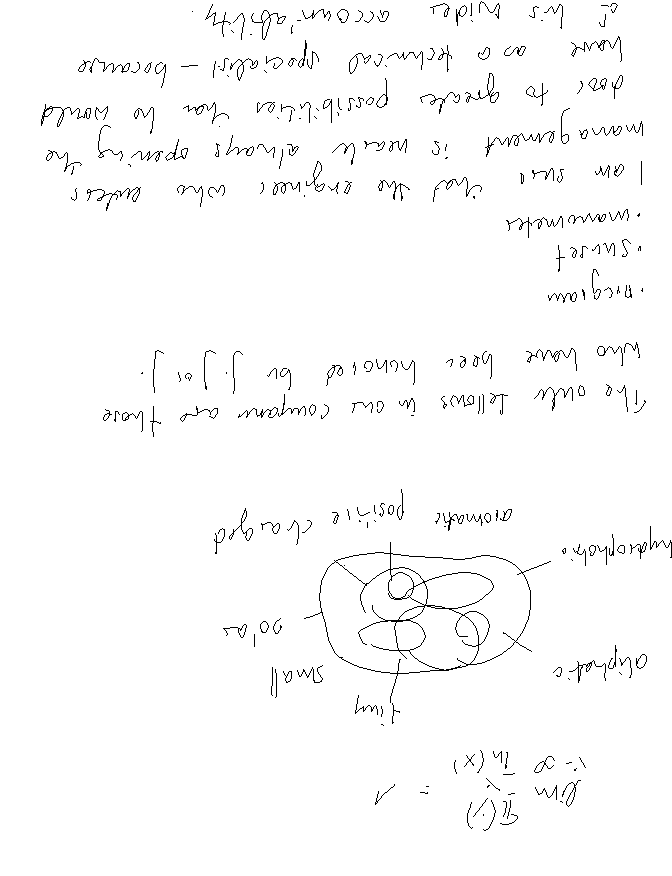 lim π(x) / (x / ln(x)) = 1
x→∞
tiny
aliphatic small
polar
hydrophobic
aromatic positive charged
The only fellows in our company are those
who have been honored by J. J. or J.
· sunset
· manometer
I am sure that the engineer who enters
management is nearly always opening the
door to greater possibilities than he would
have as a technical specialist – because
of his wider accountability.